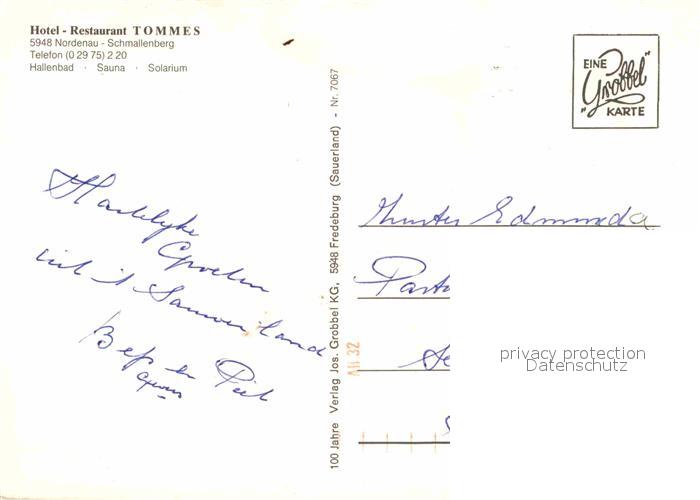 Hotel - Restaurant TOMMES
5948 Nordenau - Schmallenberg
Telefon (0 29 75) 2 20
Hallenbad · Sauna · Solarium
EINE
"Grobbel"
KARTE
100 Jahre Verlag Jos. Grobbel KG, 5948 Fredeburg (Sauerland) - Nr. 7067
Hartelyke
Groeten
uit 't Sauerland
Bep en Piet
Zuster Edmunda
Past
All 32
privacy protection
Datenschutz